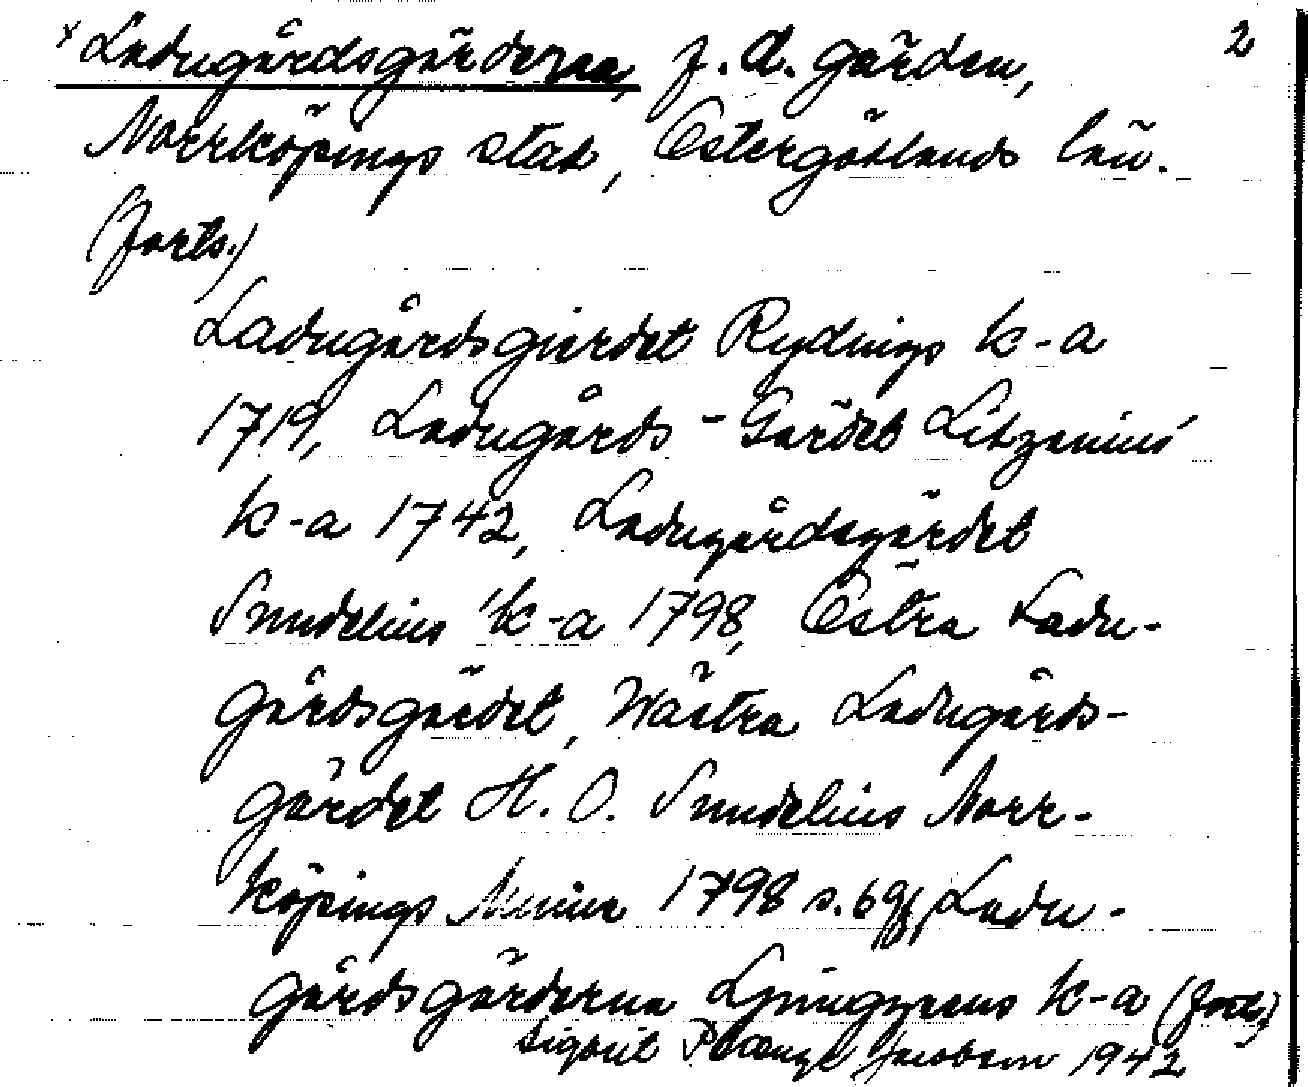 x Ladugårdsgärderna, f.d. gärden, 2
Norrköpings stad, Östergötlands län.
(forts.)
Ladugårdsgierdet Rydings k-a
1719, Ladugårds-Gärdet Litzenius
k-a 1742, Ladugårdsgärdet
Sundelius k-a 1798, Östra Ladu-
gårdsgärdet, Wästra Ladugårds-
gärdet H. O. Sundelius Norr-
köpings Minne 1798 s. 69f, Ladu-
gårdsgärderna Ljunggrens k-a (forts.)
Sigurd Jacobson 1942